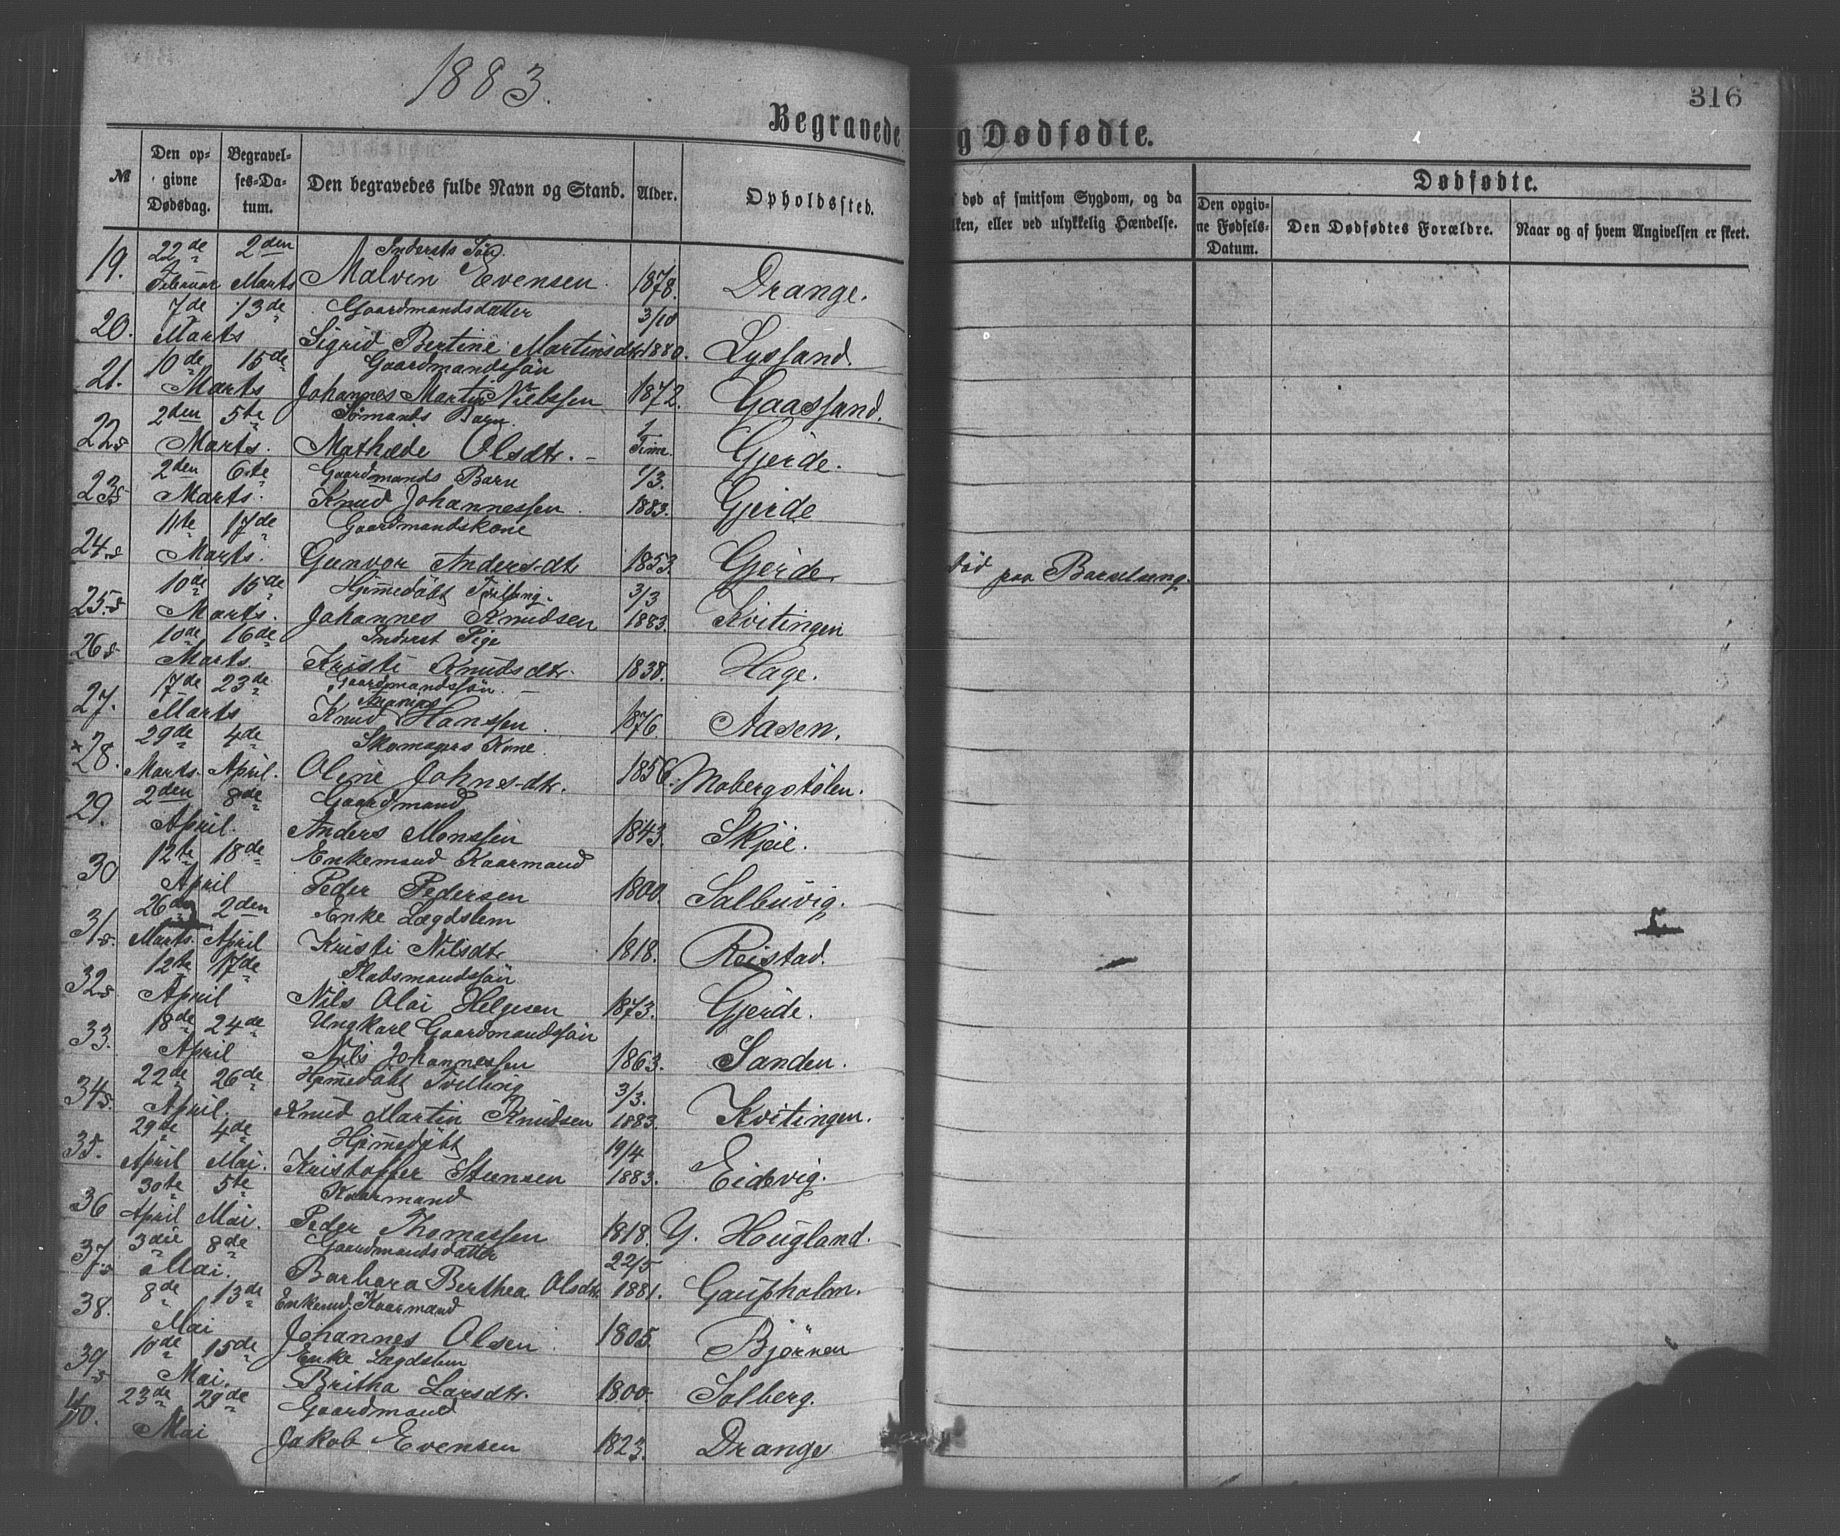 1883.
316
Begravede
g Dødfødte.
№
Den opgivne Dødsdag.
Begravelses-Datum.
Den begravedes fulde Navn og Stand.
Alder.
Opholdssted.
død af smitsom Sygdom, og da
lken, eller ved ulykkelig Hændelse.
Dødfødte.
Den opgivne Fødsels-Datum.
Den Dødfødtes Forældre.
Naar og af hvem Angivelsen er skeet.
19. 22de Februar 2den Marts Indersts Søn
Malvin Evensen 1878. Drange.
20. 7de 13de Marts Gaardmandsdatter 3/10
Sigrid Bertine Martinsdtr 1880. Lyssand.
21. 10de 15de Marts Gaardmandssøn
Johannes Martin Nielssen 1872. Gaassand.
22 2den 5te Marts. Sømands Barn 1 Time.
Mathæde Olsdtr. Gjerde.
23 2den 6te Marts. Gaardmands Barn 1/3.
Knud Johannessen 1883. Gjerde
24 11te 17de Marts. Gaardmandskone
Gunvor Andersdtr 1853. Gjerde. død paa Barselseng.
25 10de 15de Marts. Hjemedøbt Tvilling. 3/3
Johannes Knudsen 1883. Kvitingen
26 10de 16de Marts. Inderst Pige
Kristi Knudsdtr. 1838. Hage.
27. 17de 23de Marts Gaardmandssøn
Knud Hanssen. 1876. Aasen.
×28. 29de Marts. 4de April. Skomagers Kone
Oline Johnsdtr. 1856. Mobergstølen.
29. 2den 8de April. Gaardmand
Anders Monssen 1843. Skjeie.
30 12te 18de April Enkemand Kaarmand
Peder Pedersen 1800. Salbuvig.
31 26de Marts. 2den April Enke Lægdslem
Kristi Nilsdtr 1818. Reistad.
32 12te 17de April Pladsmandssøn
Nils Olai Helgesen 1873. Gjerde.
33. 18de 24de April Ungkarl Gaardmandssøn
Nils Johannessen 1863. Sanden.
34 22de 26de April. Hjemedøbt Tvilling 3/3.
Knud Martin Knudsen 1883. Kvitingen.
35. 29de April 4de Mai. Hjemedøbt 19/4
Kristoffer Stensen 1883. Eidevig.
36 30te April 5te Mai. Kaarmand
Peder Thomassen 1818. Y. Hougland.
37 3die 8de Mai. Gaardmandsdatter 22/5
Barbara Berthea Olsdtr 1881. Gausholm.
38. 8de 13de Mai Enkemd. Kaarmand
Johannes Olsen 1805. Bjørnen
39 10de 15de Mai. Enke Lægdslem
Britha Larsdtr. 1800. Solberg.
40. 23de 29de Mai Gaardmand
Jakob Evensen 1823. Drange